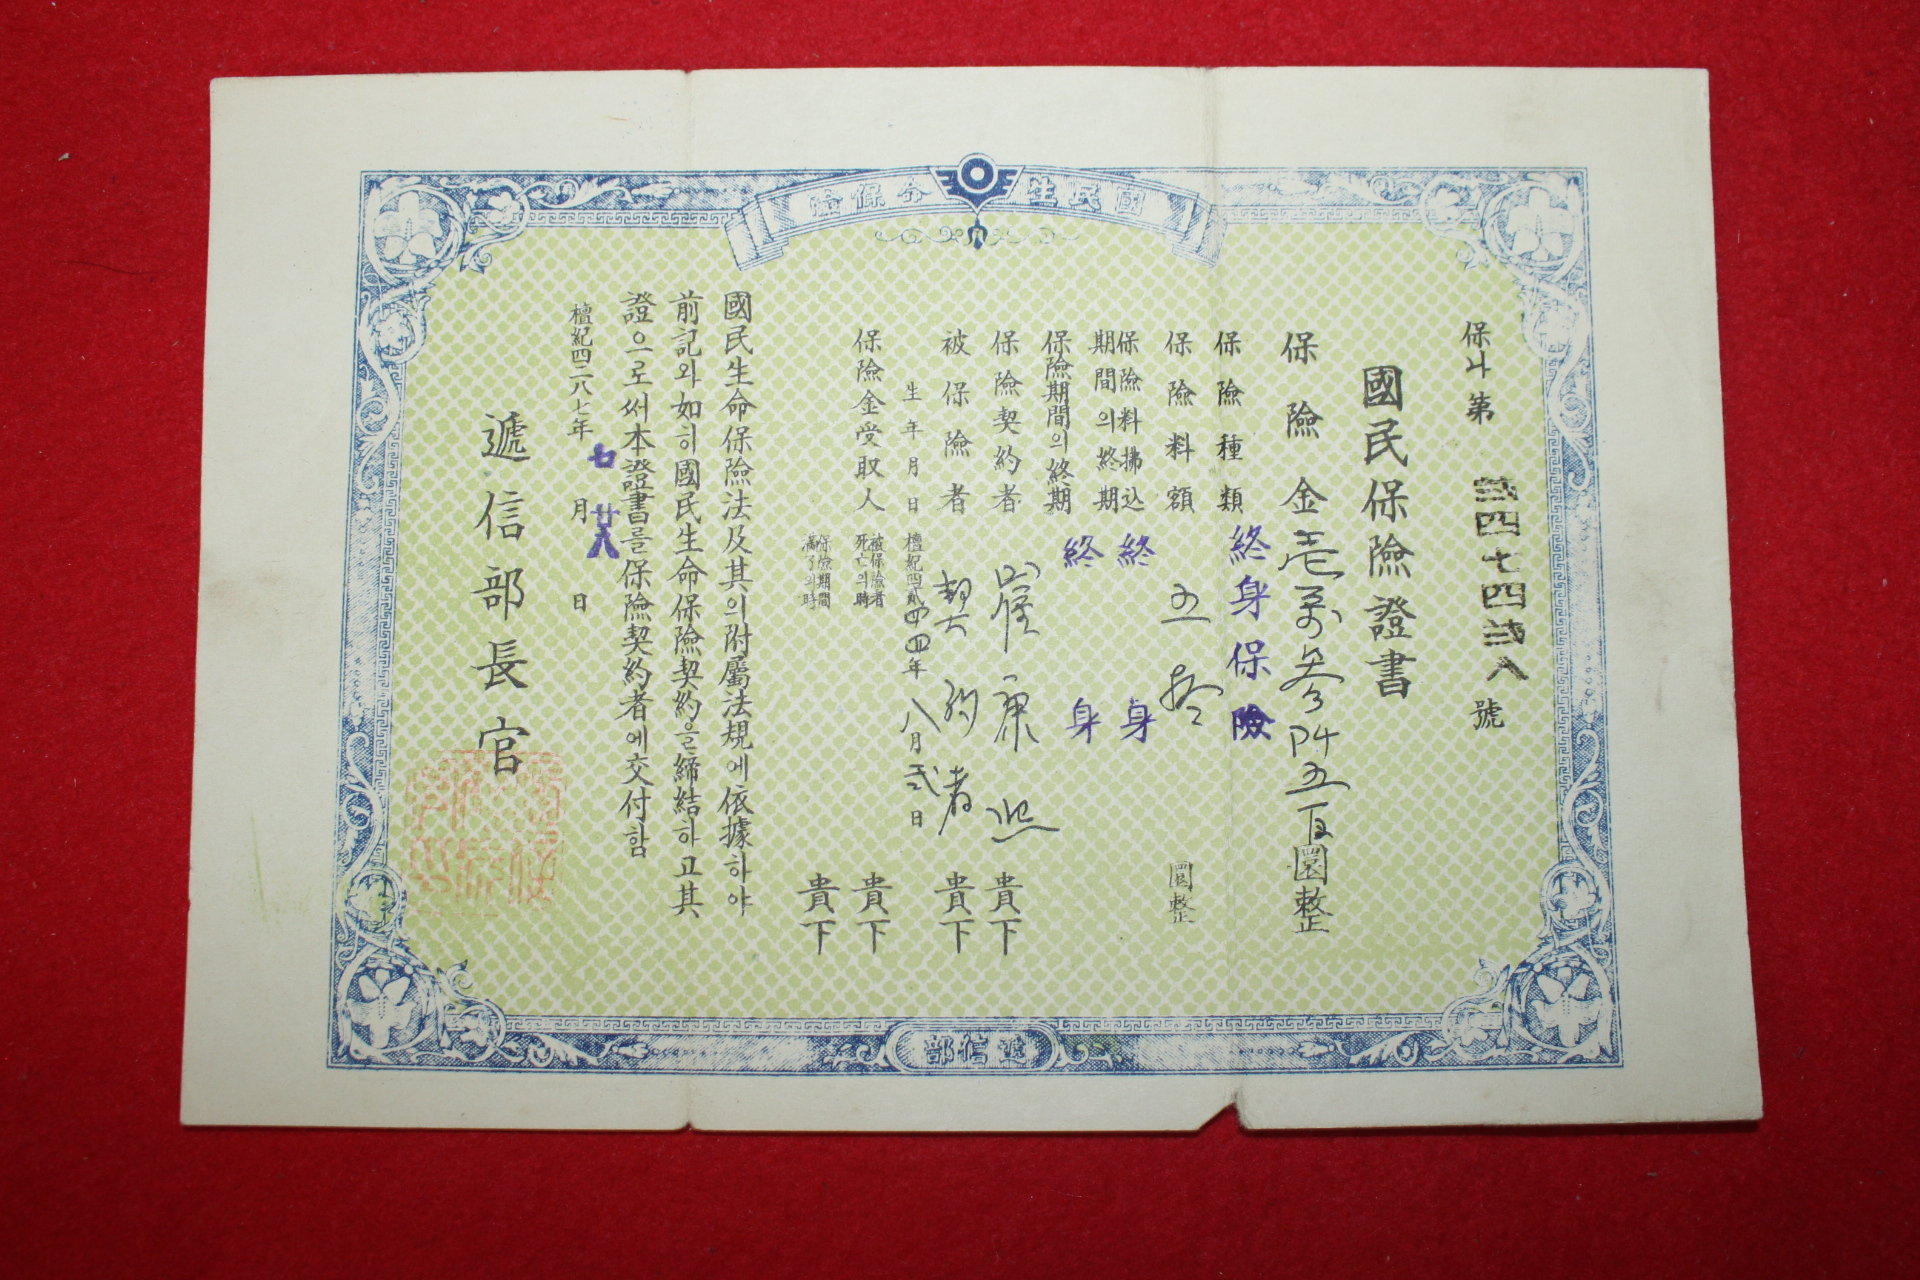 國民生命保險
保나第 貳四七四貳八號
國民保險證書
保險金壱萬參阡五百圜整
保險種類 終身保險
保險料額 五拾 圜整
保險料拂込期間의終期 終身
保險期間의終期 終身
保險契約者 崔康熙 貴下
被保險者 契約者 貴下
生年月日 檀紀四貳四四年八月貳日
保險金受取人 被保險者死亡의時 貴下
保險期間滿了의時 貴下
國民生命保險法及其의附屬法規에依據하야
前記와如히國民生命保險契約을締結하고其
證으로써本證書를保險契約者에交付함
檀紀四二八七年七月廿八日
遞信部長官
遞信部